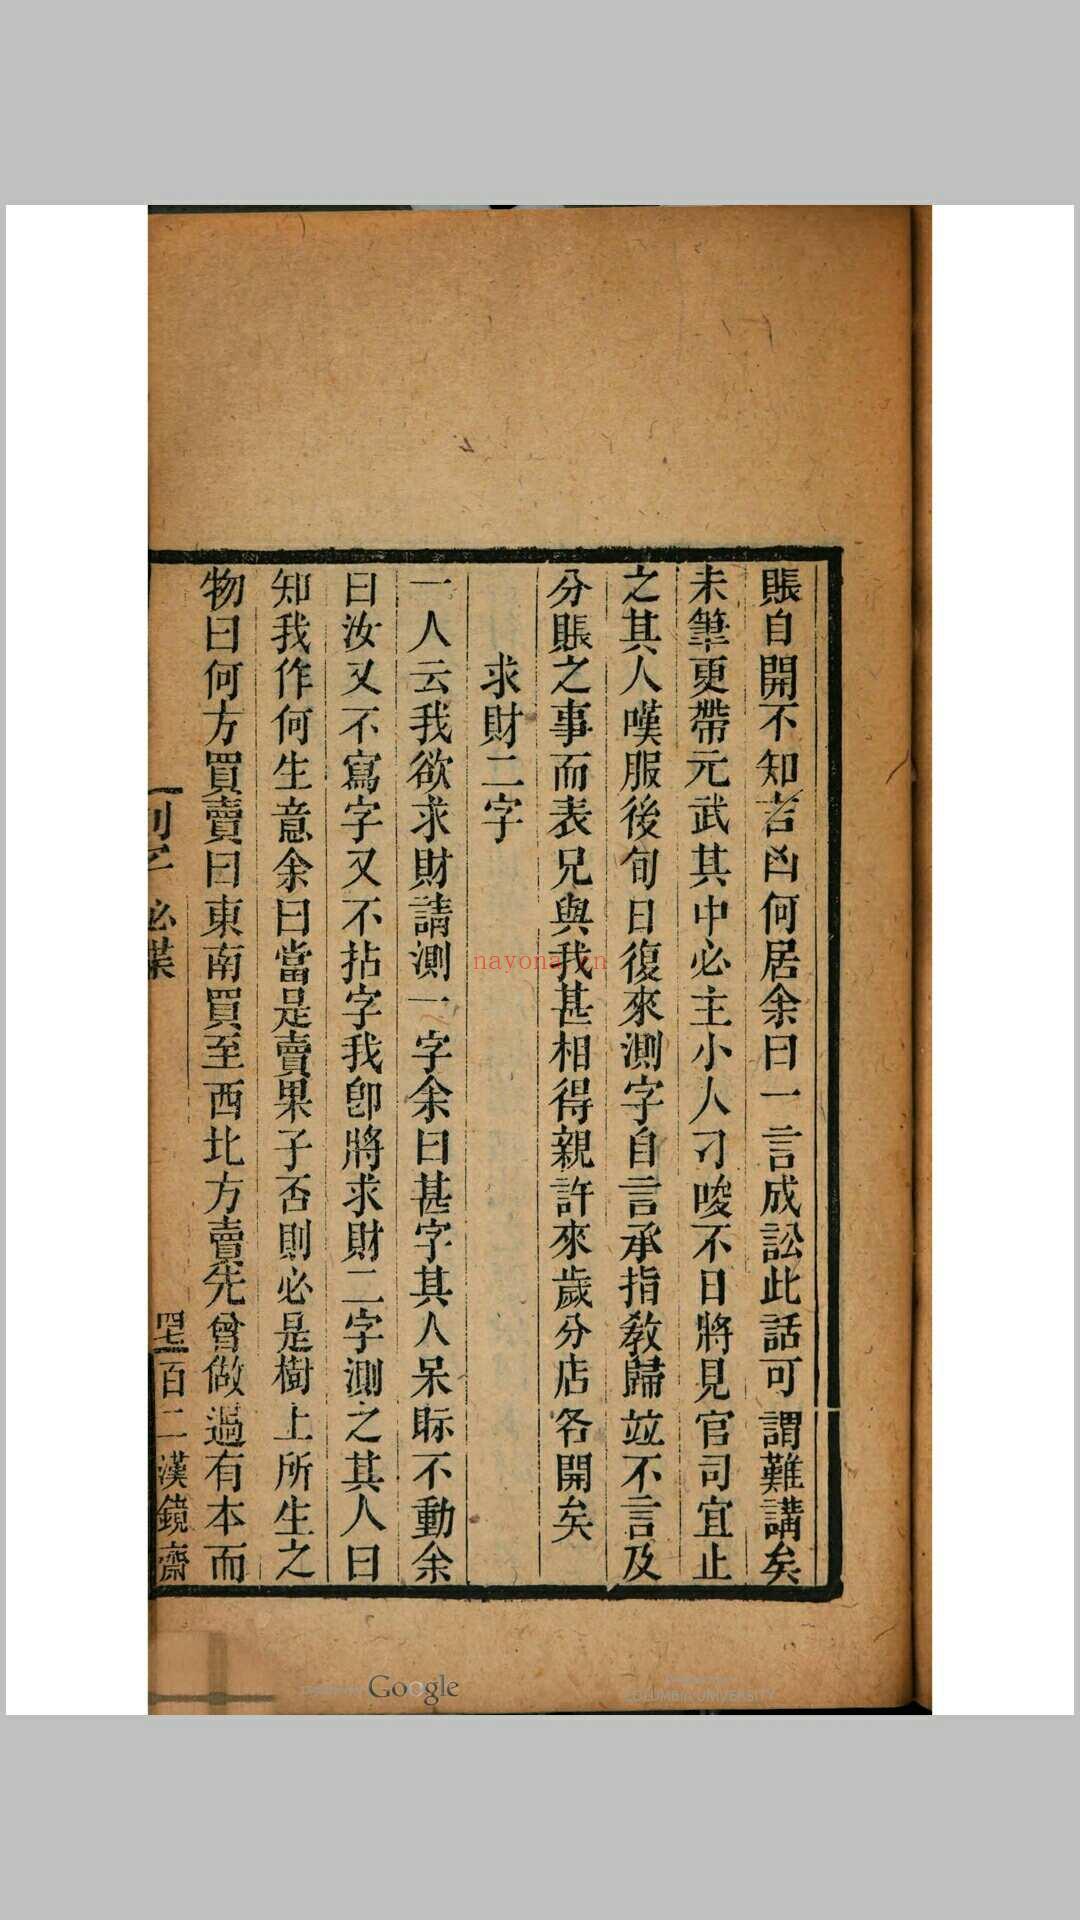 賬自開不知吉凶何居余曰一言成訟此話可謂難講矣
未筆更帶元武其中必主小人刁唆不日將見官司宜止
之其人嘆服後旬日復來測字自言承指教歸竝不言及
分賬之事而表兄與我甚相得親許來歲分店各開矣
求財二字
一人云我欲求財請測一字余曰甚字其人呆眎不動余
曰汝又不寫字又不拈字我卽將求財二字測之其人曰
知我作何生意余曰當是賣果子否則必是樹上所生之
物曰何方買賣曰東南買至西北方賣先曾做過有本而
四七
百二漢鏡齋
nayona.cn
Google
COLUMBIA UNIVERSITY